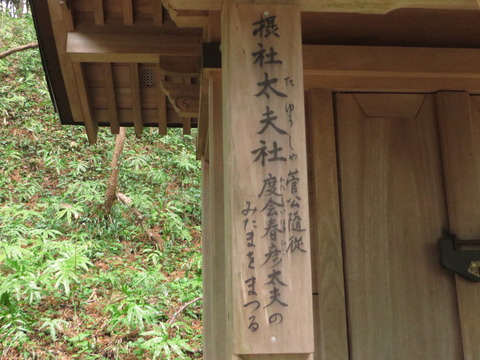 摂社太夫社
たゆうしゃ
菅公随従
度会春彦太夫の
みたまをまつる